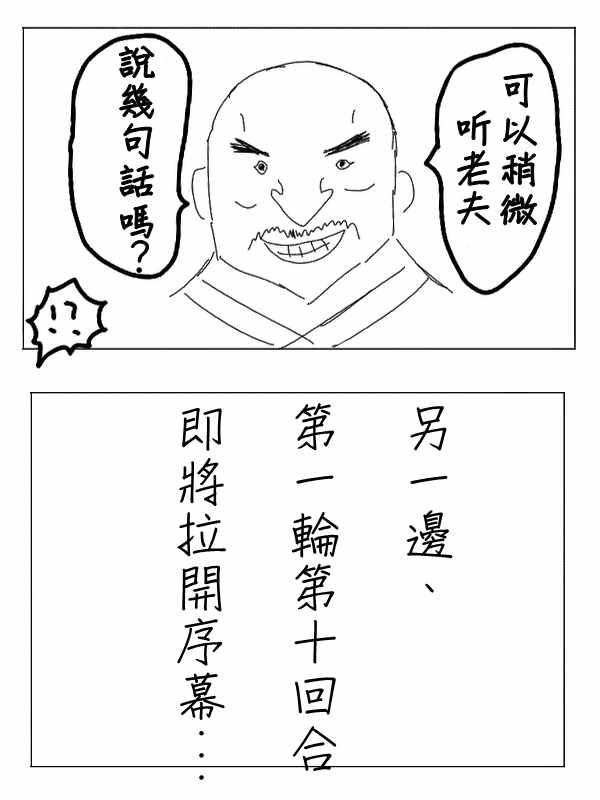 可以稍微
听老夫
說幾句話嗎？
!?
另一邊、
第一輪第十回合
即將拉開序幕⋯⋯